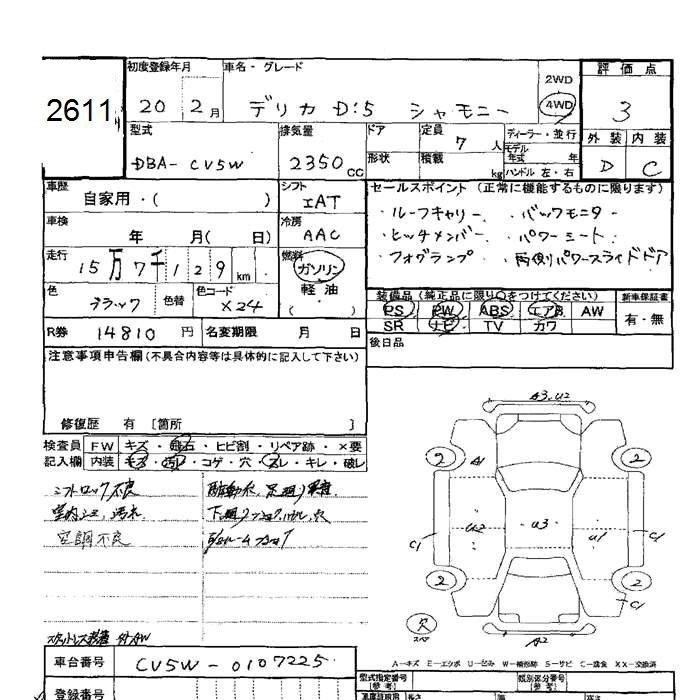 2611
初度登録年月 車名・グレード 評価点
20 2月 デリカ D:5 シャモニー 2WD 4WD 3
型式 排気量 ドア 定員 7人 ディーラー・並行 外装 内装
DBA- CV5W 2350cc 形状 積載 kg モデル年式 年 ハンドル 左・右 D C
車歴 自家用・( ) シフト IAT セールスポイント (正常に機能するものに限ります)
車検 年 月( 日) 冷房 AAC
・ルーフキャリー ・バックモニター
・ヒッチメンバー ・パワーシート
・フォグランプ ・両側パワースライドドア
走行 15万7千129km 燃料 ガソリン 軽油 ( )
色 ブラック 色替 色コード X24
装備品 (純正品に限り○をつけてください) 新車保証書
PS PW ABS エアB AW 有・無
SR ナビ TV カワ
R券 14810円 名変期限 月 日 後日品
注意事項申告欄(不具合内容等は具体的に記入して下さい)
修復歴 有 [箇所 ]
検査員 FW キズ・飛石・ヒビ割・リペア跡・×要
記入欄 内装 キズ・汚れ・コゲ・穴・スレ・キレ・破レ
シフトロック不良
室内 汚れ
空調不良
A3.U2
2 2
A1
U2 U3 U1
C1 C1
2 2
C1
欠
スペア
A2
A-キズ E-エクボ U-凹み W-補修跡 S-サビ C-腐食 XX-交換済
車台番号 CV5W-0107225
型式指定番号(参考) 類別区分番号(参考)
登録番号